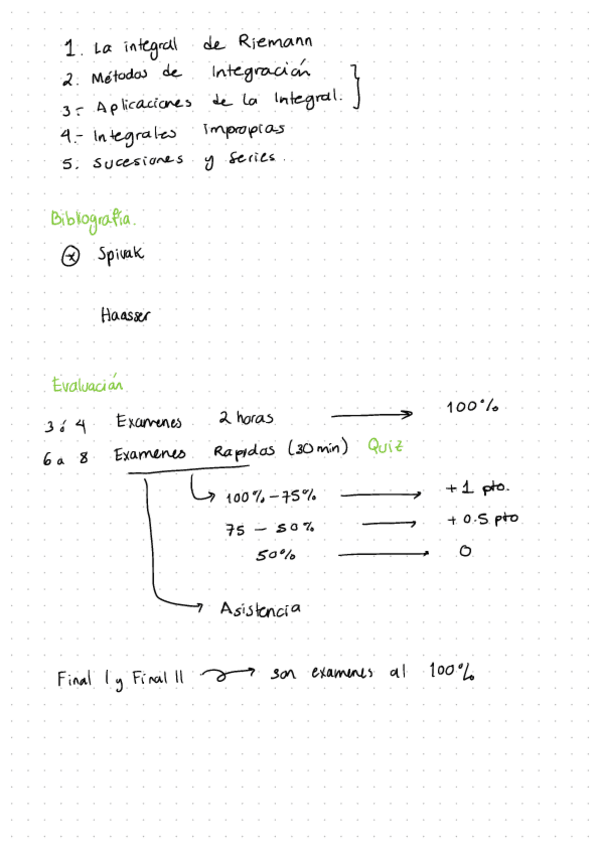 1. La integral de Riemann
2. Métodos de Integración
3.- Aplicaciones de la Integral.
4.- Integrales impropias
5. Sucesiones y Series.
Bibliografía.
* Spivak
Haasser
Evaluación
3 ó 4 Examenes 2 horas → 100%
6 a 8 Examenes Rapidos (30 min) Quiz
100% - 75% → +1 pto.
75 - 50% → +0.5 pto
50% → 0
Asistencia
Final I y Final II → son examenes al 100%